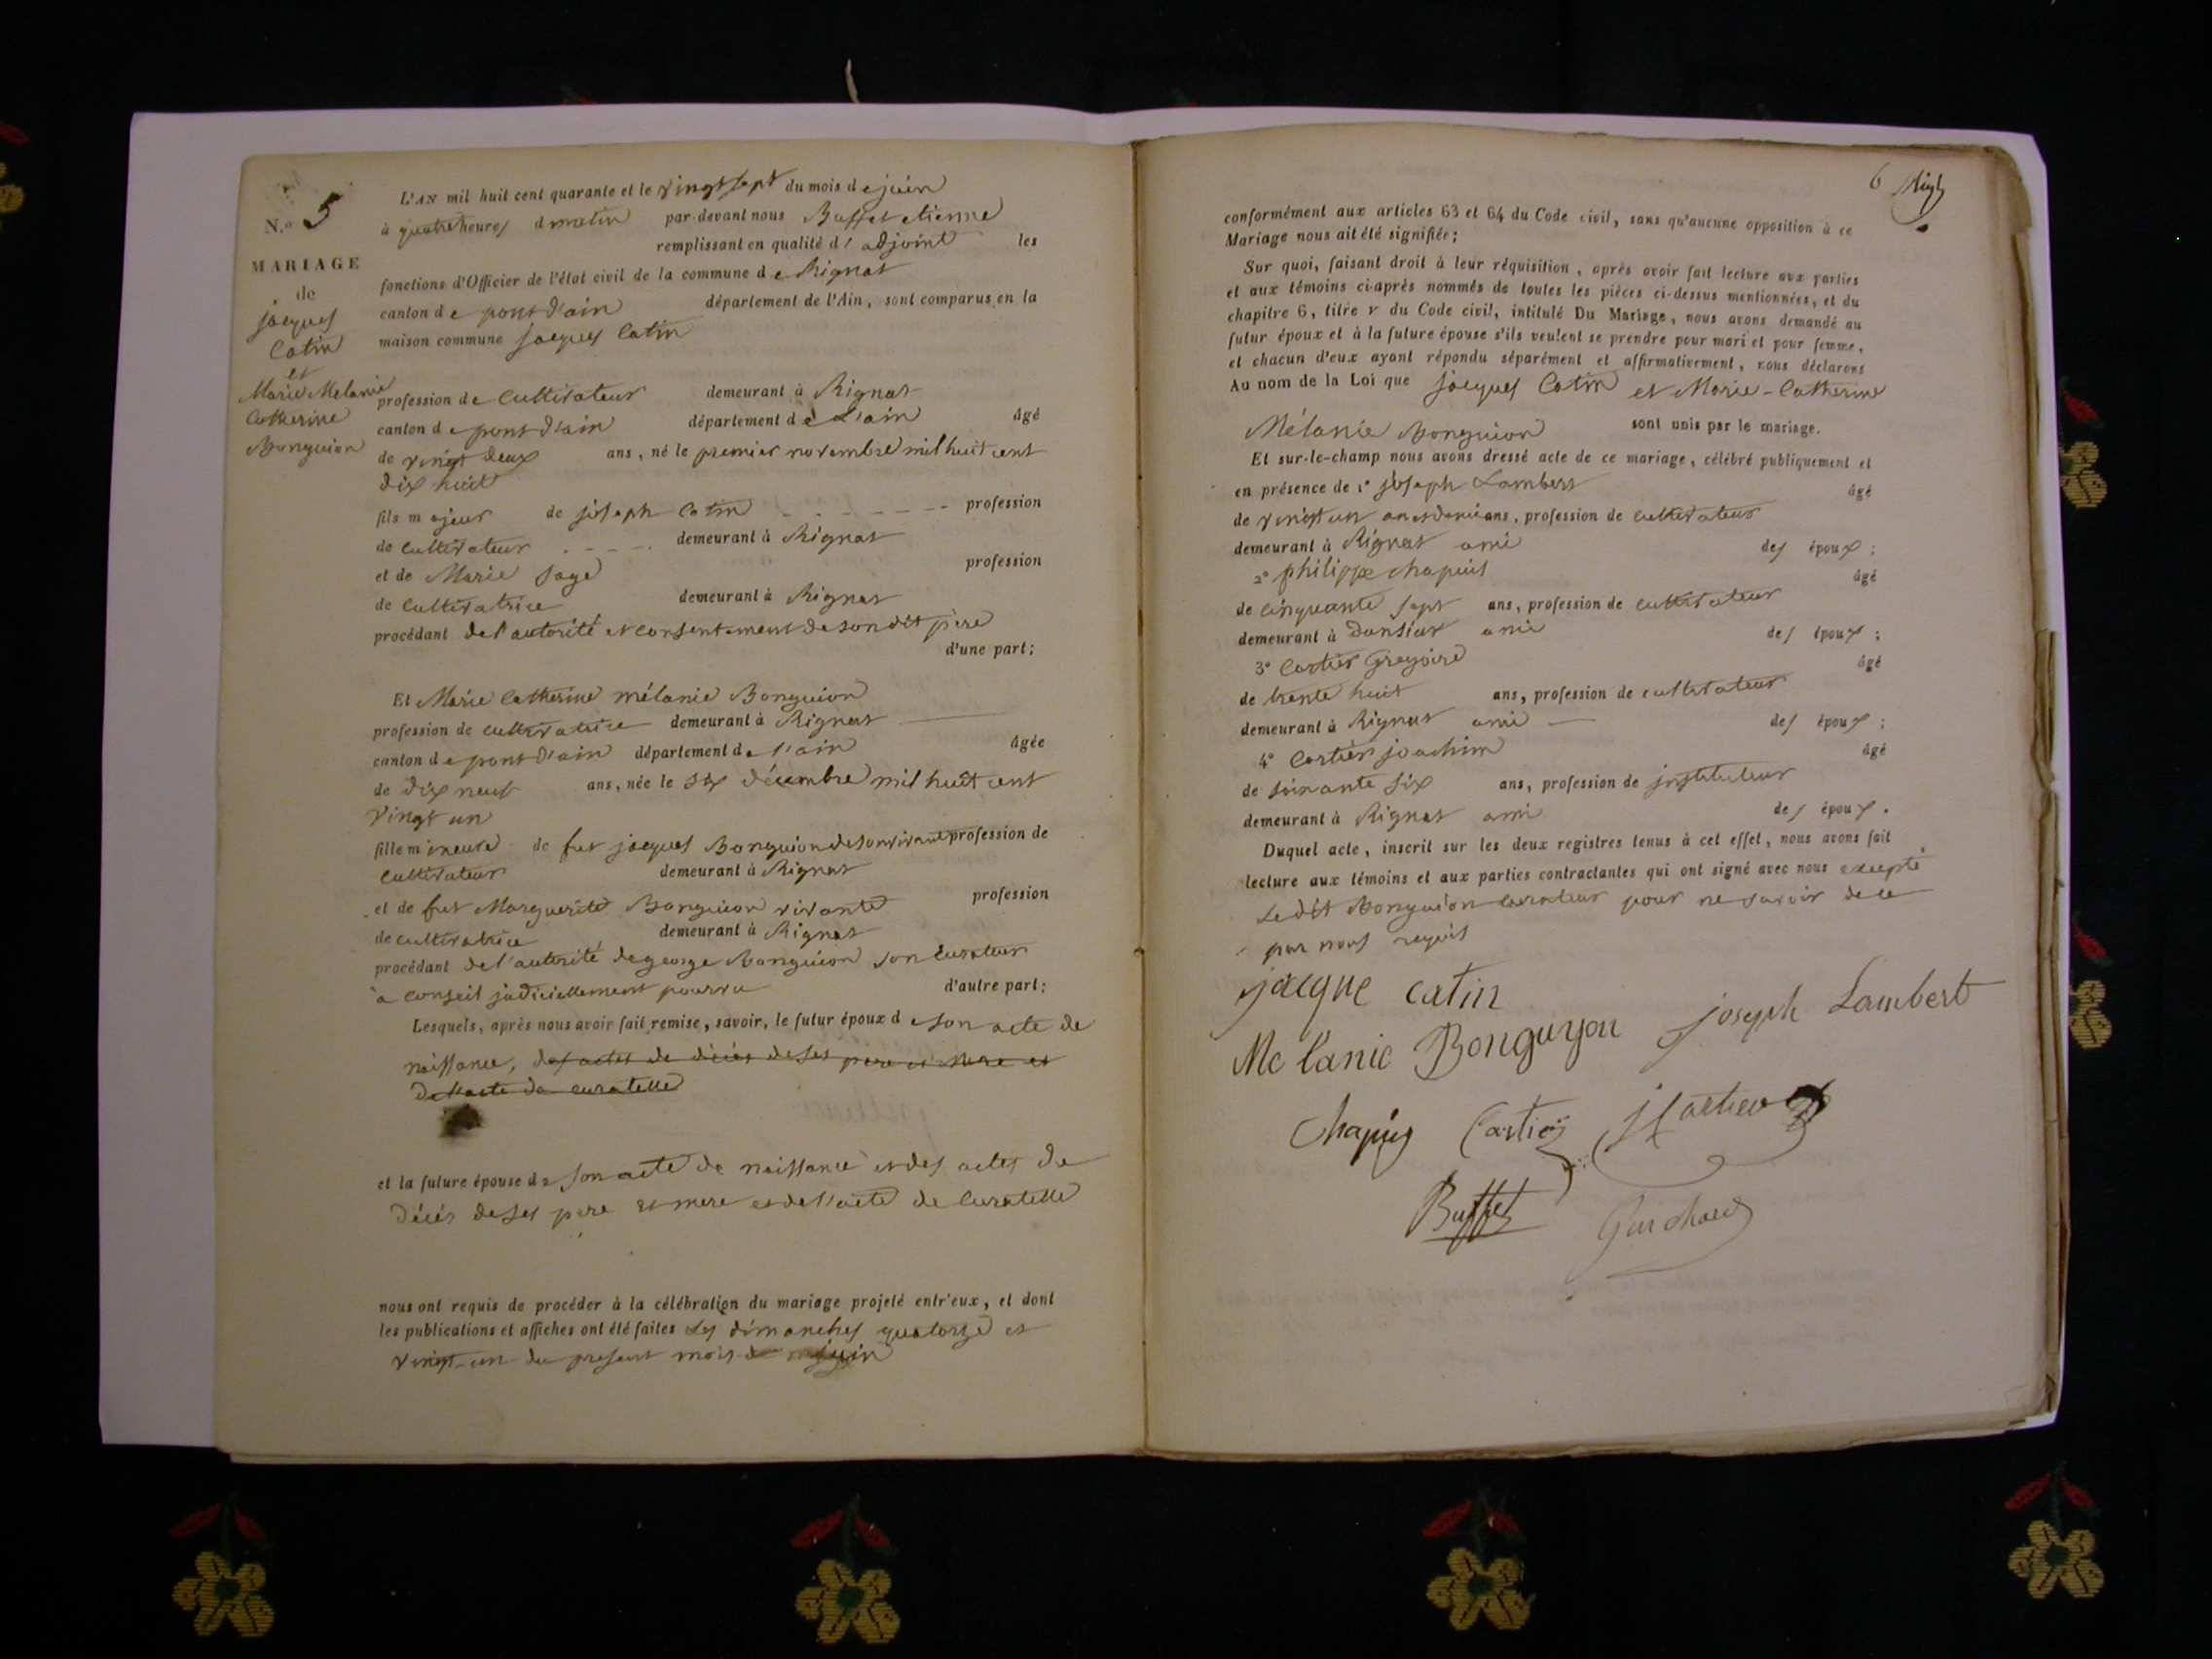 N.o 5
MARIAGE
de
jacques
Catin
et
Marie Melanie
Catherine
Bonguion
L'AN mil huit cent quarante et le vingt sept du mois de juin
à quatre heures du matin par-devant nous Buffet etienne
remplissant en qualité d'adjoint les
fonctions d'Officier de l'état civil de la commune de Rignat
canton de pont d'ain département de l'Ain, sont comparus en la
maison commune jacques Catin
profession de Cultivateur demeurant à Rignat
canton de pont d'ain département de L'ain âgé
de vingt deux ans, né le premier novembre mil huit cent
dix huit
fils majeur de joseph Catin profession
de cultivateur demeurant à Rignat
et de Marie Sage profession
de Cultivatrice demeurant à Rignat
procédant de l'autorité et consentement de son dit père
d'une part;
Et Marie Catherine mélanie Bonguion
profession de cultivatrice demeurant à Rignat
canton de pont d'ain département de l'ain âgée
de dix neuf ans, née le six décembre mil huit cent
vingt un
fille mineure de fut jacques Bonguion de son vivant profession de
Cultivateur demeurant à Rignat
et de fut Marguerite Bonguion vivante profession
de cultivatrice demeurant à Rignat
procédant de l'autorité de george Bonguion son curateur
a conseil judiciellement pourvu d'autre part;
Lesquels, après nous avoir fait remise, savoir, le futur époux de son acte de
naissance, des actes de décés de ses père et mere et
de l'acte de curatelle
et la future épouse de son acte de naissance et des actes de
décés de ses pere et mere et de l'acte de Curatelle
nous ont requis de procéder à la célébration du mariage projeté entr'eux, et dont
les publications et affiches ont été faites les dimanches quatorze et
vingt-un du present mois de juin
6
conformément aux articles 63 et 64 du Code civil, sans qu'aucune opposition à ce
Mariage nous ait été signifiée;
Sur quoi, faisant droit à leur réquisition, après avoir fait lecture aux parties
et aux témoins ci-après nommés de toutes les pièces ci-dessus mentionnées, et du
chapitre 6, titre v du Code civil, intitulé Du Mariage, nous avons demandé au
futur époux et à la future épouse s'ils veulent se prendre pour mari et pour femme,
et chacun d'eux ayant répondu séparément et affirmativement, nous déclarons
Au nom de la Loi que jacques Catin et Marie-Catherine
Mélanie Bonguion sont unis par le mariage.
Et sur-le-champ nous avons dressé acte de ce mariage, célébré publiquement et
en présence de 1° joseph Lambert âgé
de vingt un an et demi ans, profession de cultivateur
demeurant à Rignat ami des époux;
2° philippe chapuis âgé
de cinquante sept ans, profession de cultivateur
demeurant à ami des époux;
3° Cartier Gregoire âgé
de trente huit ans, profession de cultivateur
demeurant à Rignat ami des époux;
4° Cartier joachim âgé
de soixante six ans, profession de instituteur
demeurant à Rignat ami des époux.
Duquel acte, inscrit sur les deux registres tenus à cet effet, nous avons fait
lecture aux témoins et aux parties contractantes qui ont signé avec nous excepté
Le dit Bonguion curateur pour ne savoir de ce
par nous requis
jacque catin
joseph Lambert
Melanie Bonguyon
Chapuy Cartier
Buffet